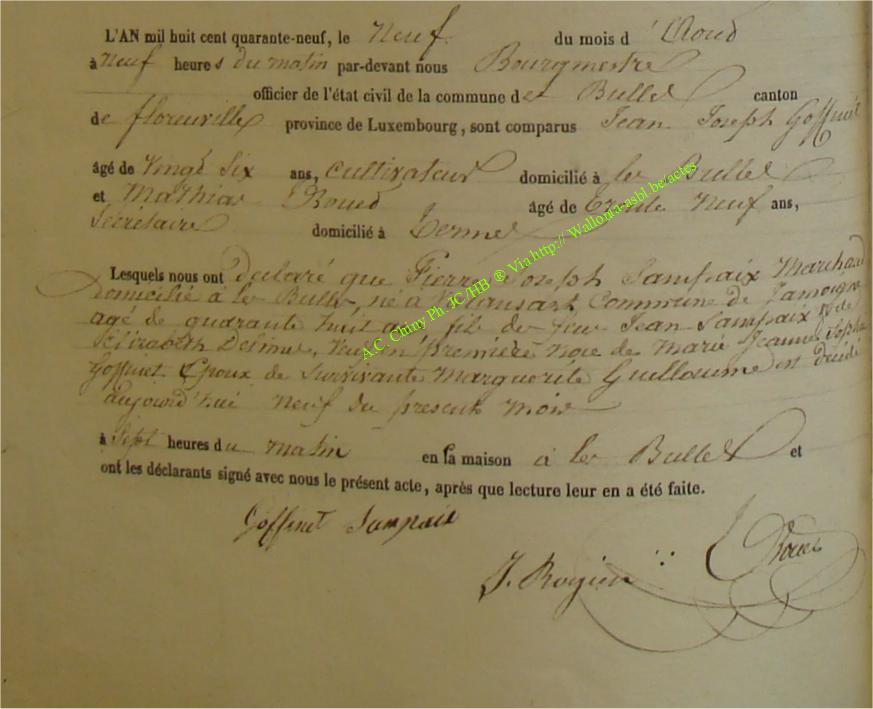 L'AN mil huit cent quarante-neuf, le Neuf du mois d'Aoud
à Neuf heures du matin par-devant nous Bourgmestre
officier de l'état civil de la commune de Bulles canton
de florenville province de Luxembourg, sont comparus Jean Joseph Goffinet
âgé de Vingt Six ans, Cultivateur domicilié à les Bulles
et Mathias Roued âgé de Trente Neuf ans,
Sécrétaire domicilié à Termes
Lesquels nous ont déclaré que Pierre Joseph Sampaix Marchand
domicilié à les Bulles, né à Commune de Jamoigne
agé de quarante huit ans fils de feu Jean Sampaix et de
Elizabeth première noce de Marie Jeanne Josephe
Goffinet. Epoux de Survivante Marguerite Guillaume est décidé
aujourd'hui neuf du présent mois
à Sept heures du matin en la maison à les Bulles et
ont les déclarants signé avec nous le présent acte, après que lecture leur en a été faite.
Goffinet Sampaix
J. Rogier
A.C. Chiny Ph. JC /HB ® Via http:// Wallonia-asbl.be/actes